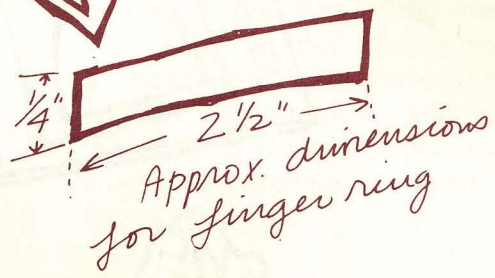 1/4"
2 1/2"
Approx. dimensions
for finger ring